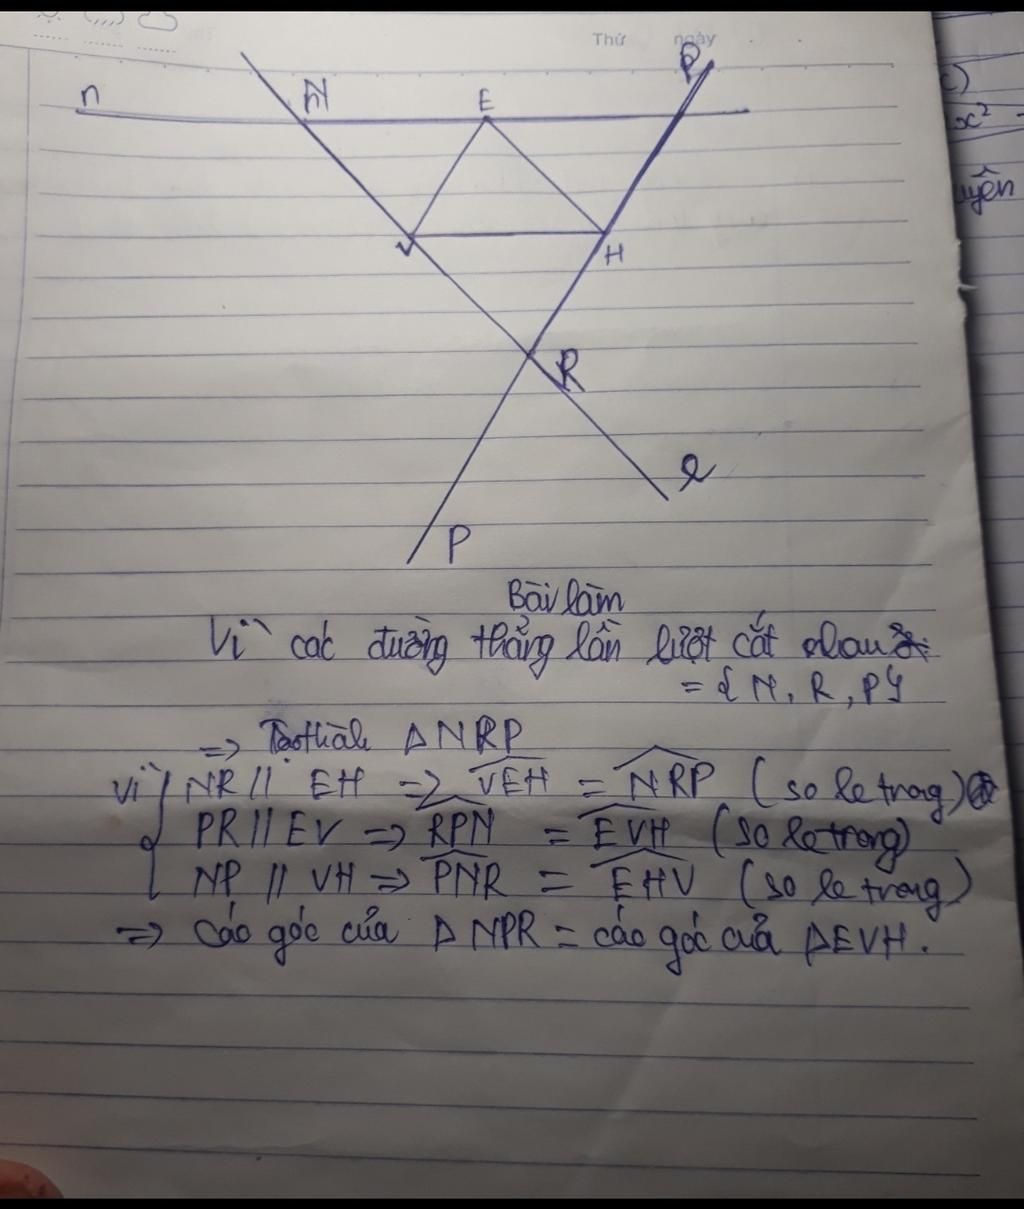 Thứ ngày
n N E P
V H
R
P
c)
x² -
uyên
Bài làm
Vì các đường thẳng lần lượt cắt nhau
= { N, R, P}
=> Tạo thành Δ NRP
Vì NR // EH => VEH = NRP (so le trong)
PR // EV => RPN = EVH (so le trong)
NP // VH => PNR = EHV (so le trong)
=> Các góc của Δ NPR = các góc của Δ EVH.